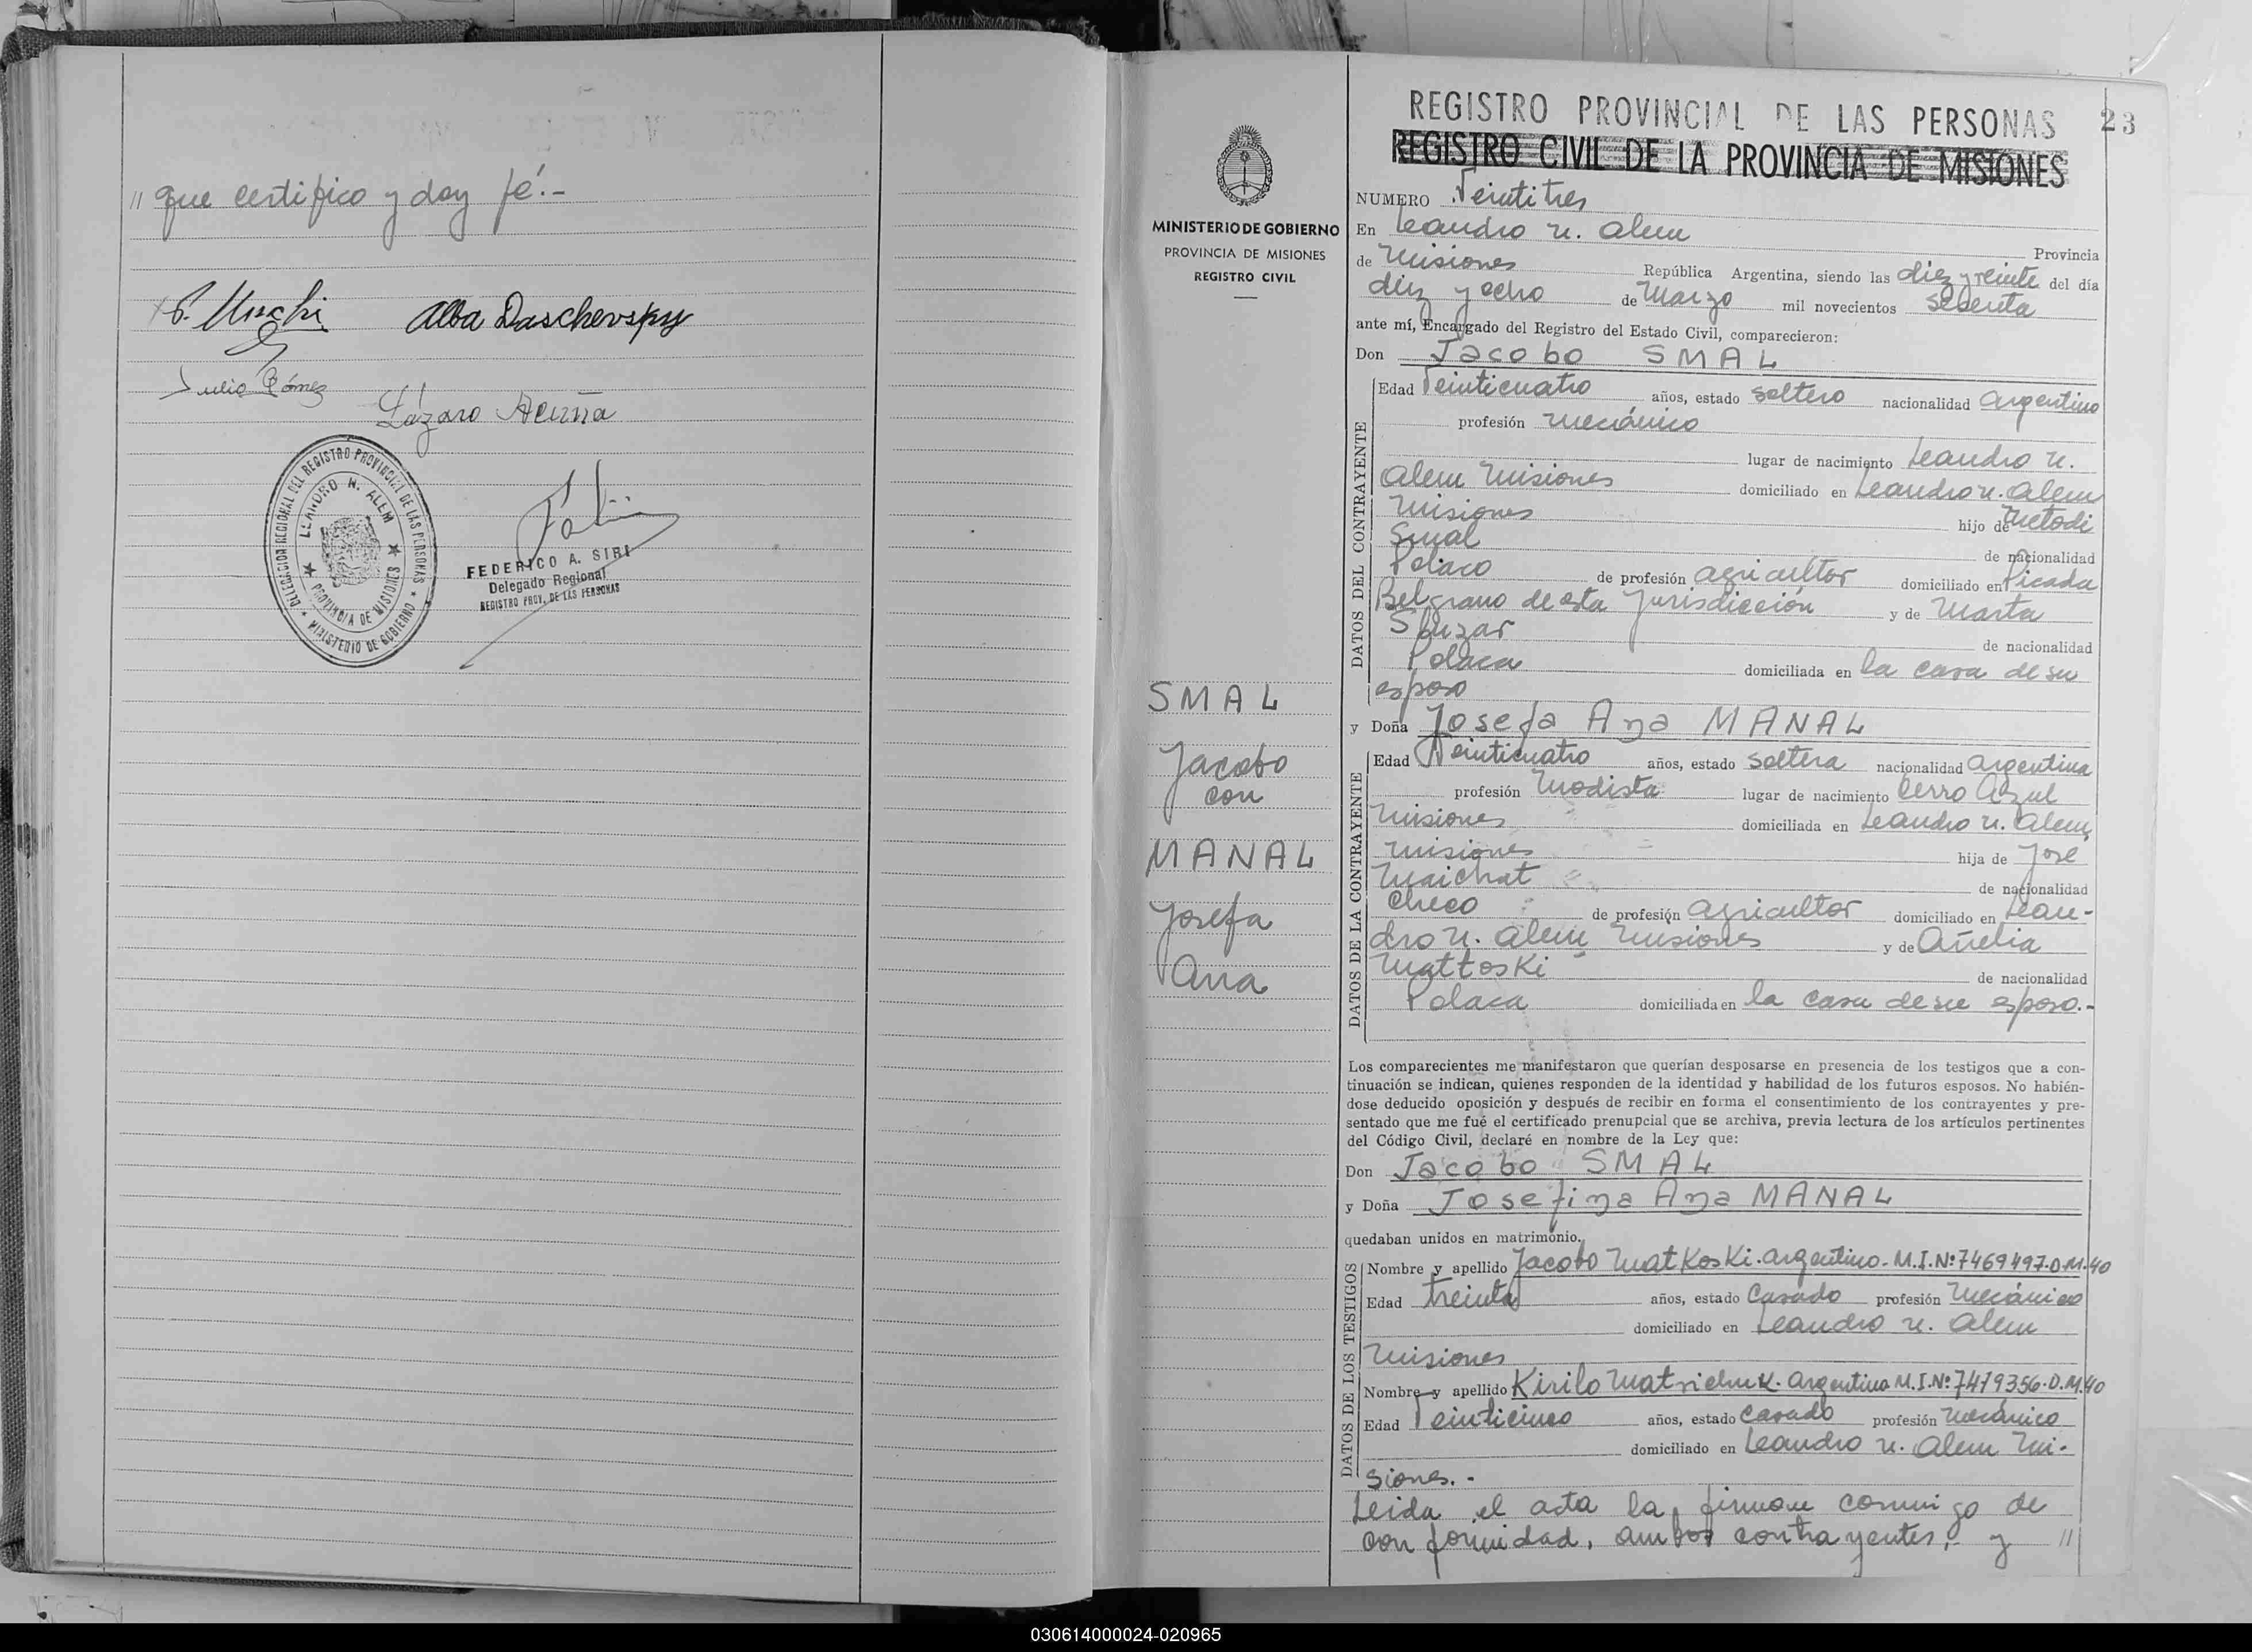 // que certifico y doy fé.-
Alba Daschevspy
Julio Gómez
Lázaro Acuña
DELEGACION REGIONAL DEL REGISTRO PROVINCIAL DE LAS PERSONAS
LEANDRO N. ALEM
PROVINCIA DE MISIONES
MINISTERIO DE GOBIERNO
FEDERICO A. SIRI
Delegado Regional
REGISTRO PROV. DE LAS PERSONAS
MINISTERIO DE GOBIERNO
PROVINCIA DE MISIONES
REGISTRO CIVIL
SMAL
Jacobo
con
MANAL
Josefa
Ana
REGISTRO PROVINCIAL DE LAS PERSONAS 23
REGISTRO CIVIL DE LA PROVINCIA DE MISIONES
NUMERO Veintitres
En Leandro N. Alem Provincia
de Misiones República Argentina, siendo las diez y veinte del día
diez y ocho de Marzo mil novecientos setenta
ante mí, Encargado del Registro del Estado Civil, comparecieron:
Don Jacobo SMAL
DATOS DEL CONTRAYENTE
Edad Veinticuatro años, estado soltero nacionalidad Argentino
profesión mecánico
lugar de nacimiento Leandro N.
Alem Misiones domiciliado en Leandro N. Alem
Misiones hijo de Metodi
Smal de nacionalidad
Polaco de profesión agricultor domiciliado en Picada
Belgrano de esta Jurisdicción y de Marta
Sluzar de nacionalidad
Polaca domiciliada en la casa de su
esposo
y Doña Josefa Ana MANAL
DATOS DE LA CONTRAYENTE
Edad Veinticuatro años, estado soltera nacionalidad argentina
profesión Modista lugar de nacimiento Cerro Azul
Misiones domiciliada en Leandro N. Alem,
Misiones hija de José
Maichat de nacionalidad
Checo de profesión agricultor domiciliado en Lean-
dro N. Alem Misiones y de Añelia
Mattoski de nacionalidad
Polaca domiciliada en la casa de su esposo.-
Los comparecientes me manifestaron que querían desposarse en presencia de los testigos que a con-
tinuación se indican, quienes responden de la identidad y habilidad de los futuros esposos. No habién-
dose deducido oposición y después de recibir en forma el consentimiento de los contrayentes y pre-
sentado que me fué el certificado prenupcial que se archiva, previa lectura de los artículos pertinentes
del Código Civil, declaré en nombre de la Ley que:
Don Jacobo SMAL
y Doña Josefina Ana MANAL
quedaban unidos en matrimonio.
DATOS DE LOS TESTIGOS
Nombre y apellido Jacobo Matkoski. argentino. M.I.Nº 7469497.D.M.40
Edad treinta años, estado Casado profesión Mecánico
domiciliado en Leandro N. Alem
Misiones
Nombre y apellido Kirilo Matrichuk. Argentino M.I.Nº 7479356.D.M.40
Edad Veinticinco años, estado Casado profesión mecánico
domiciliado en Leandro N. Alem Mi-
siones.-
Leida el acta la firman conmigo de
conformidad, ambos contrayentes, y //
030614000024-020965